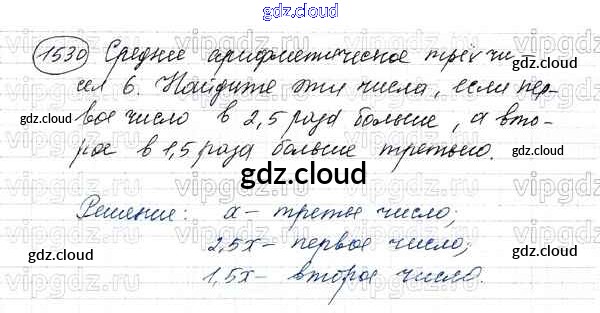 gdz.cloud
1530 Среднее арифметическое трёх чи-
gdz.cloud
сел 6. Найдите эти числа, если пер-
gdz.cloud
вое число в 2,5 раза больше, а вто-
gdz.cloud
рое в 1,5 раза больше третьего.
gdz.cloud
Решение: х – третье число;
gdz.cloud
2,5х – первое число;
gdz.cloud
1,5х – второе число.